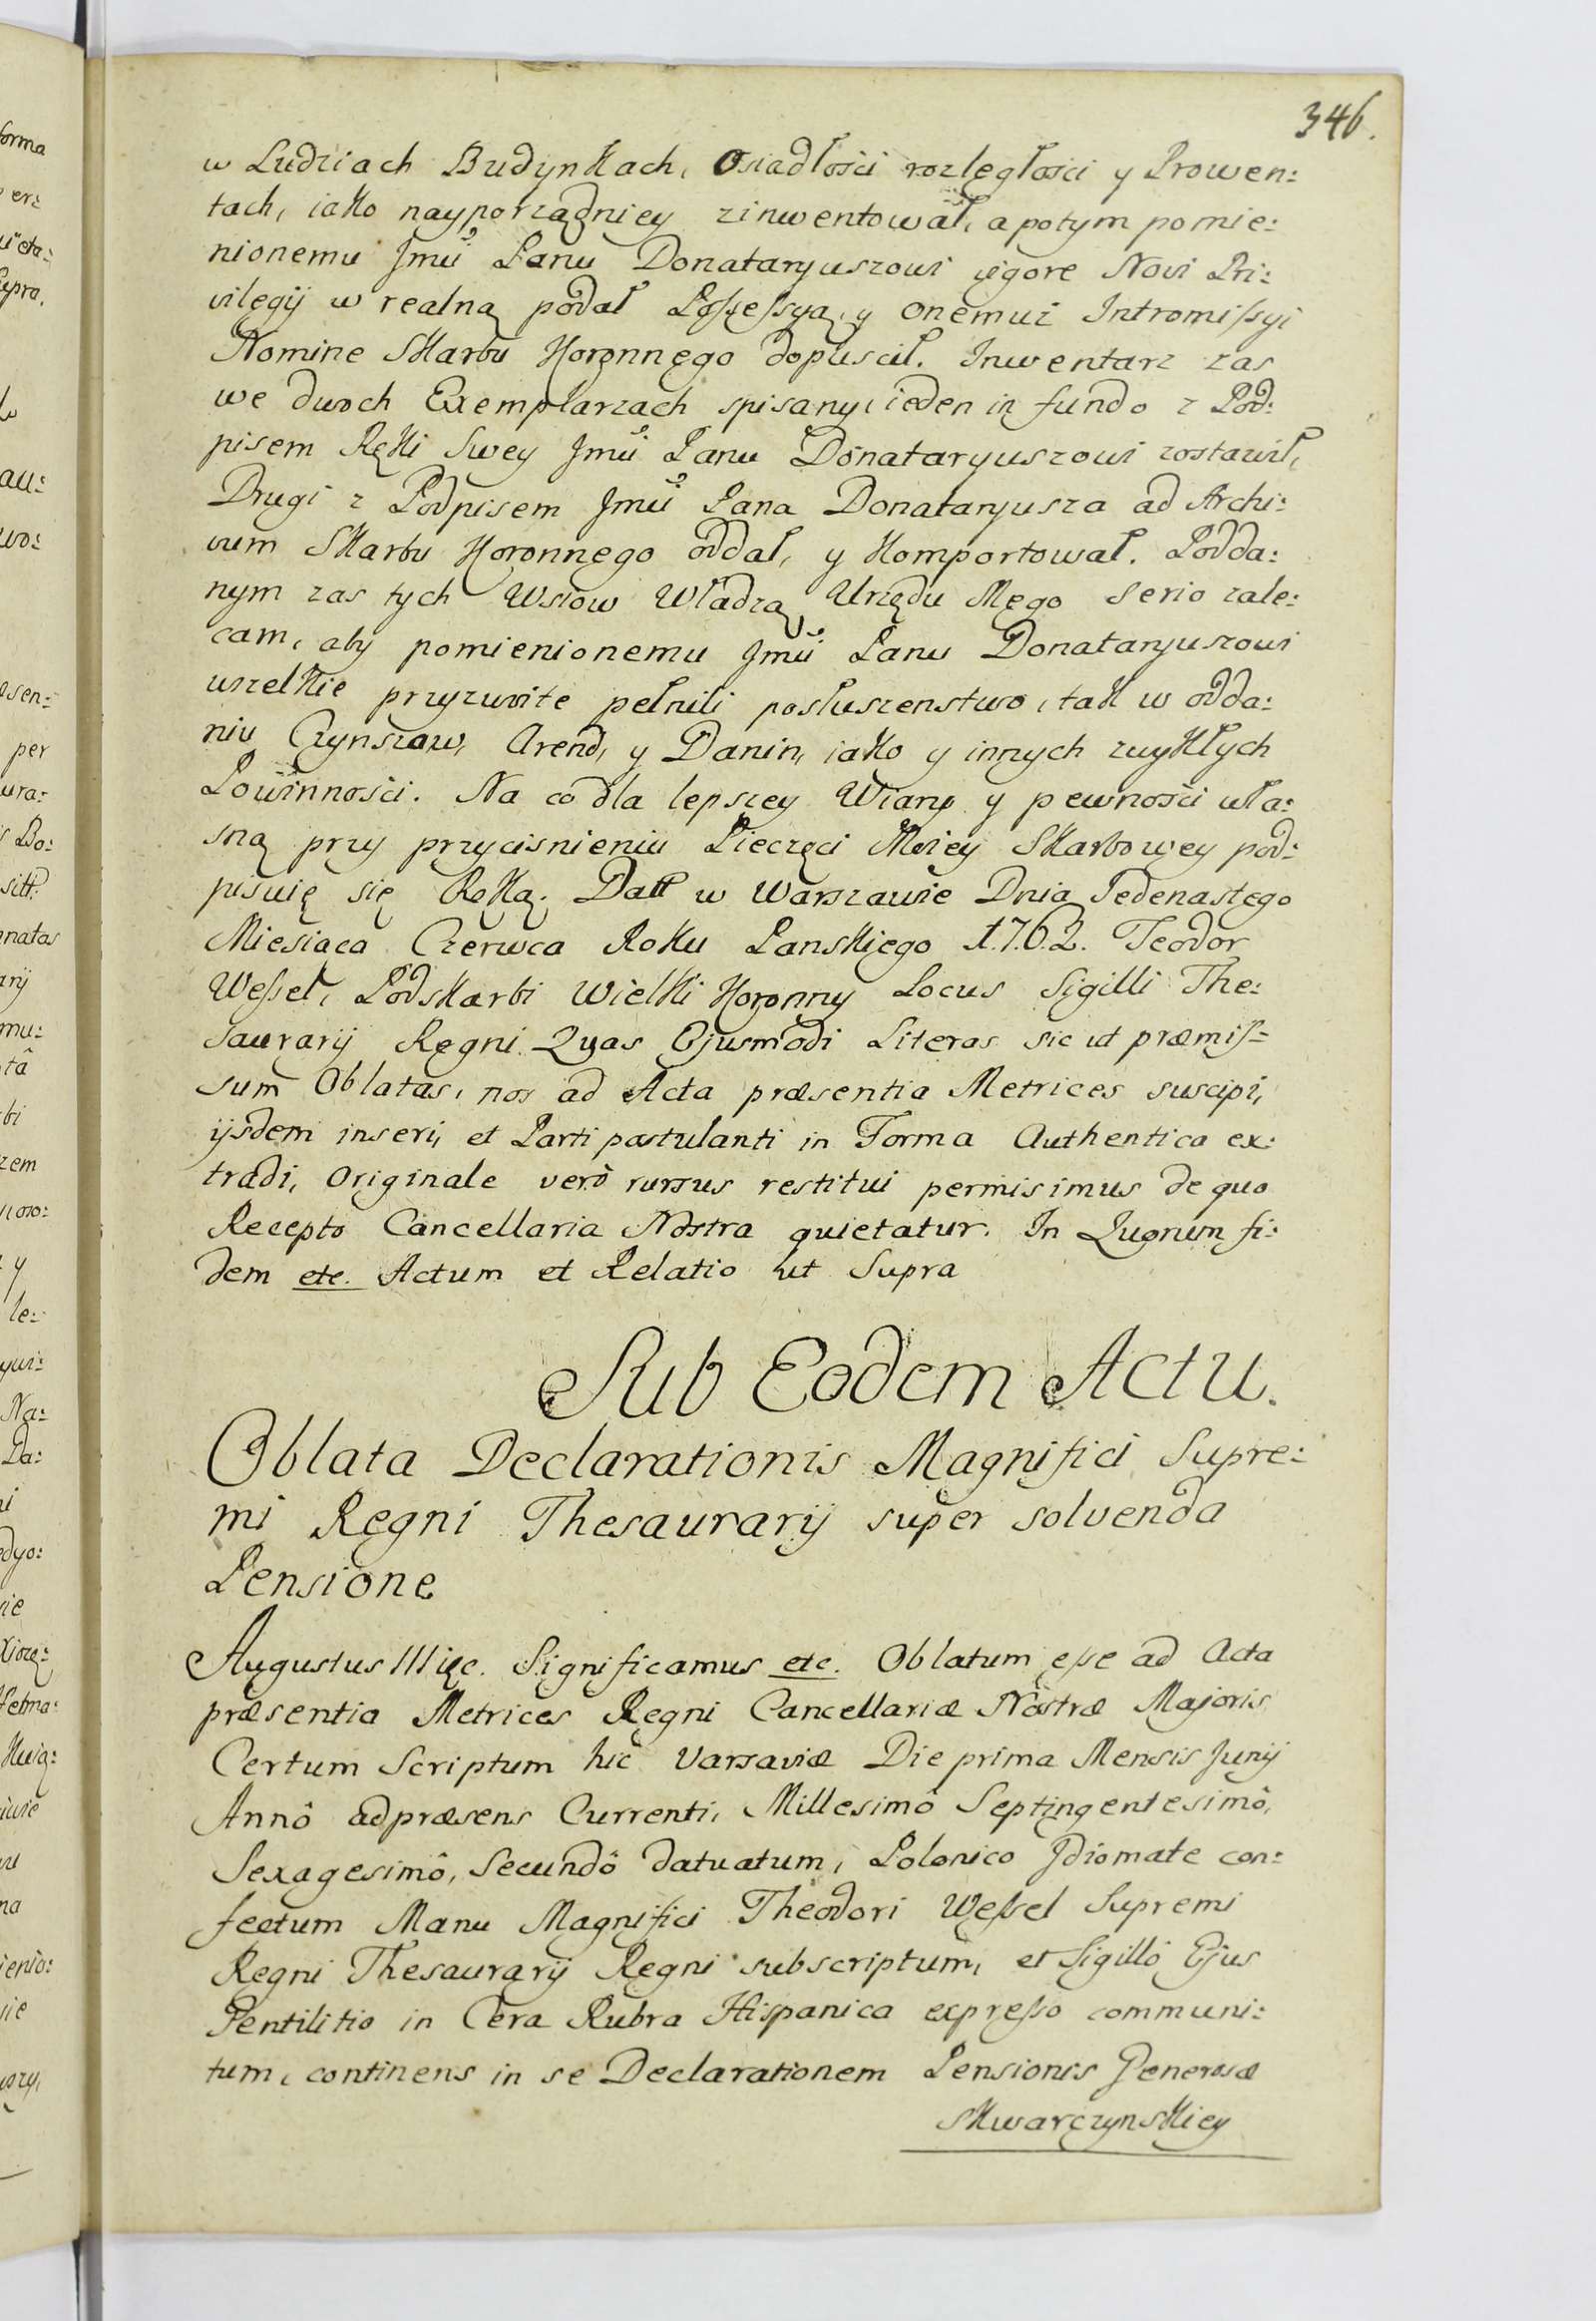 346.
w Ludziach Budynkach, Osiadłości rozległości y Prowen:
tach, iako nayporządniey zinwentował, a potym pomie:
nionemu Jmći Panu Donataryuszowi vigore Novi Pri:
vilegij w realną podał Possessyą, y onemuż Intromissyi
Nomine Skarbu Koronnego dopuścił. Inwentarz zas
we dwoch Exemplarzach spisany, ieden in fundo z Pod:
pisem Ręki Swey Jmći Panu Donataryuszowi zostawił,
Drugi z Podpisem Jmći Pana Donataryusza ad Archi:
vum Skarbu Koronnego oddał, y Komportował. Podda:
nym zas tych Wsiow Władzą Urzędu Mego serio zale:
cam, aby pomienionemu Jmći Panu Donataryuszowi
wszelkie przyzwoite pełnili posłuszenstwo, tak w odda:
niu Czynszow, Arend, y Danin, iako y innych zwykłych
Powinności. Na co dla lepszey Wiary y pewności wła:
sną przy przycisnieniu Pieczęci Moiey Skarbowey pod:
pisuię się Ręką. Datt w Warszawie Dnia Jedenastego
Miesiąca Czerwca Roku Panskiego 1.7.6.2. Teodor
Wessel, Podskarbi Wielki Koronny Locus Sigilli The:
saurarij Regni. Quas Ejusmodi Literas sic ut præmis=
sum Oblatas, nos ad Acta præsentia Metrices suscipi,
ijsdem inseri, et Parti postulanti in Forma Authentica ex:
tradi, Originale verò rursus restitui permisimus de quo
Recepto Cancellaria Nostra quietatur. In Quorum fi:
dem etc. Actum et Relatio ut Supra
Sub Eodem Actu.
Oblata Declarationis Magnifici Supre:
mi Regni Thesaurarij super solvenda
Pensione
Augustus III etc. Significamus etc. Oblatum esse ad Acta
præsentia Metrices Regni Cancellariæ Nostræ Majoris
Certum Scriptum hic Varsaviæ Die prima Mensis Junij
Annô adpræsens Currenti, Millesimô Septingentesimô,
Sexagesimô, Secundô datuatum, Polonico Jdiomate con:
fectum Manu Magnifici Theodori Wessel Supremi
Regni Thesaurarij Regni subscriptum, et Sigillô Ejus
Gentilitio in Cera Rubra Hispanica expresso communi:
tum, continens in se Declarationem Pensionis Generosæ
Skwarczynskiey